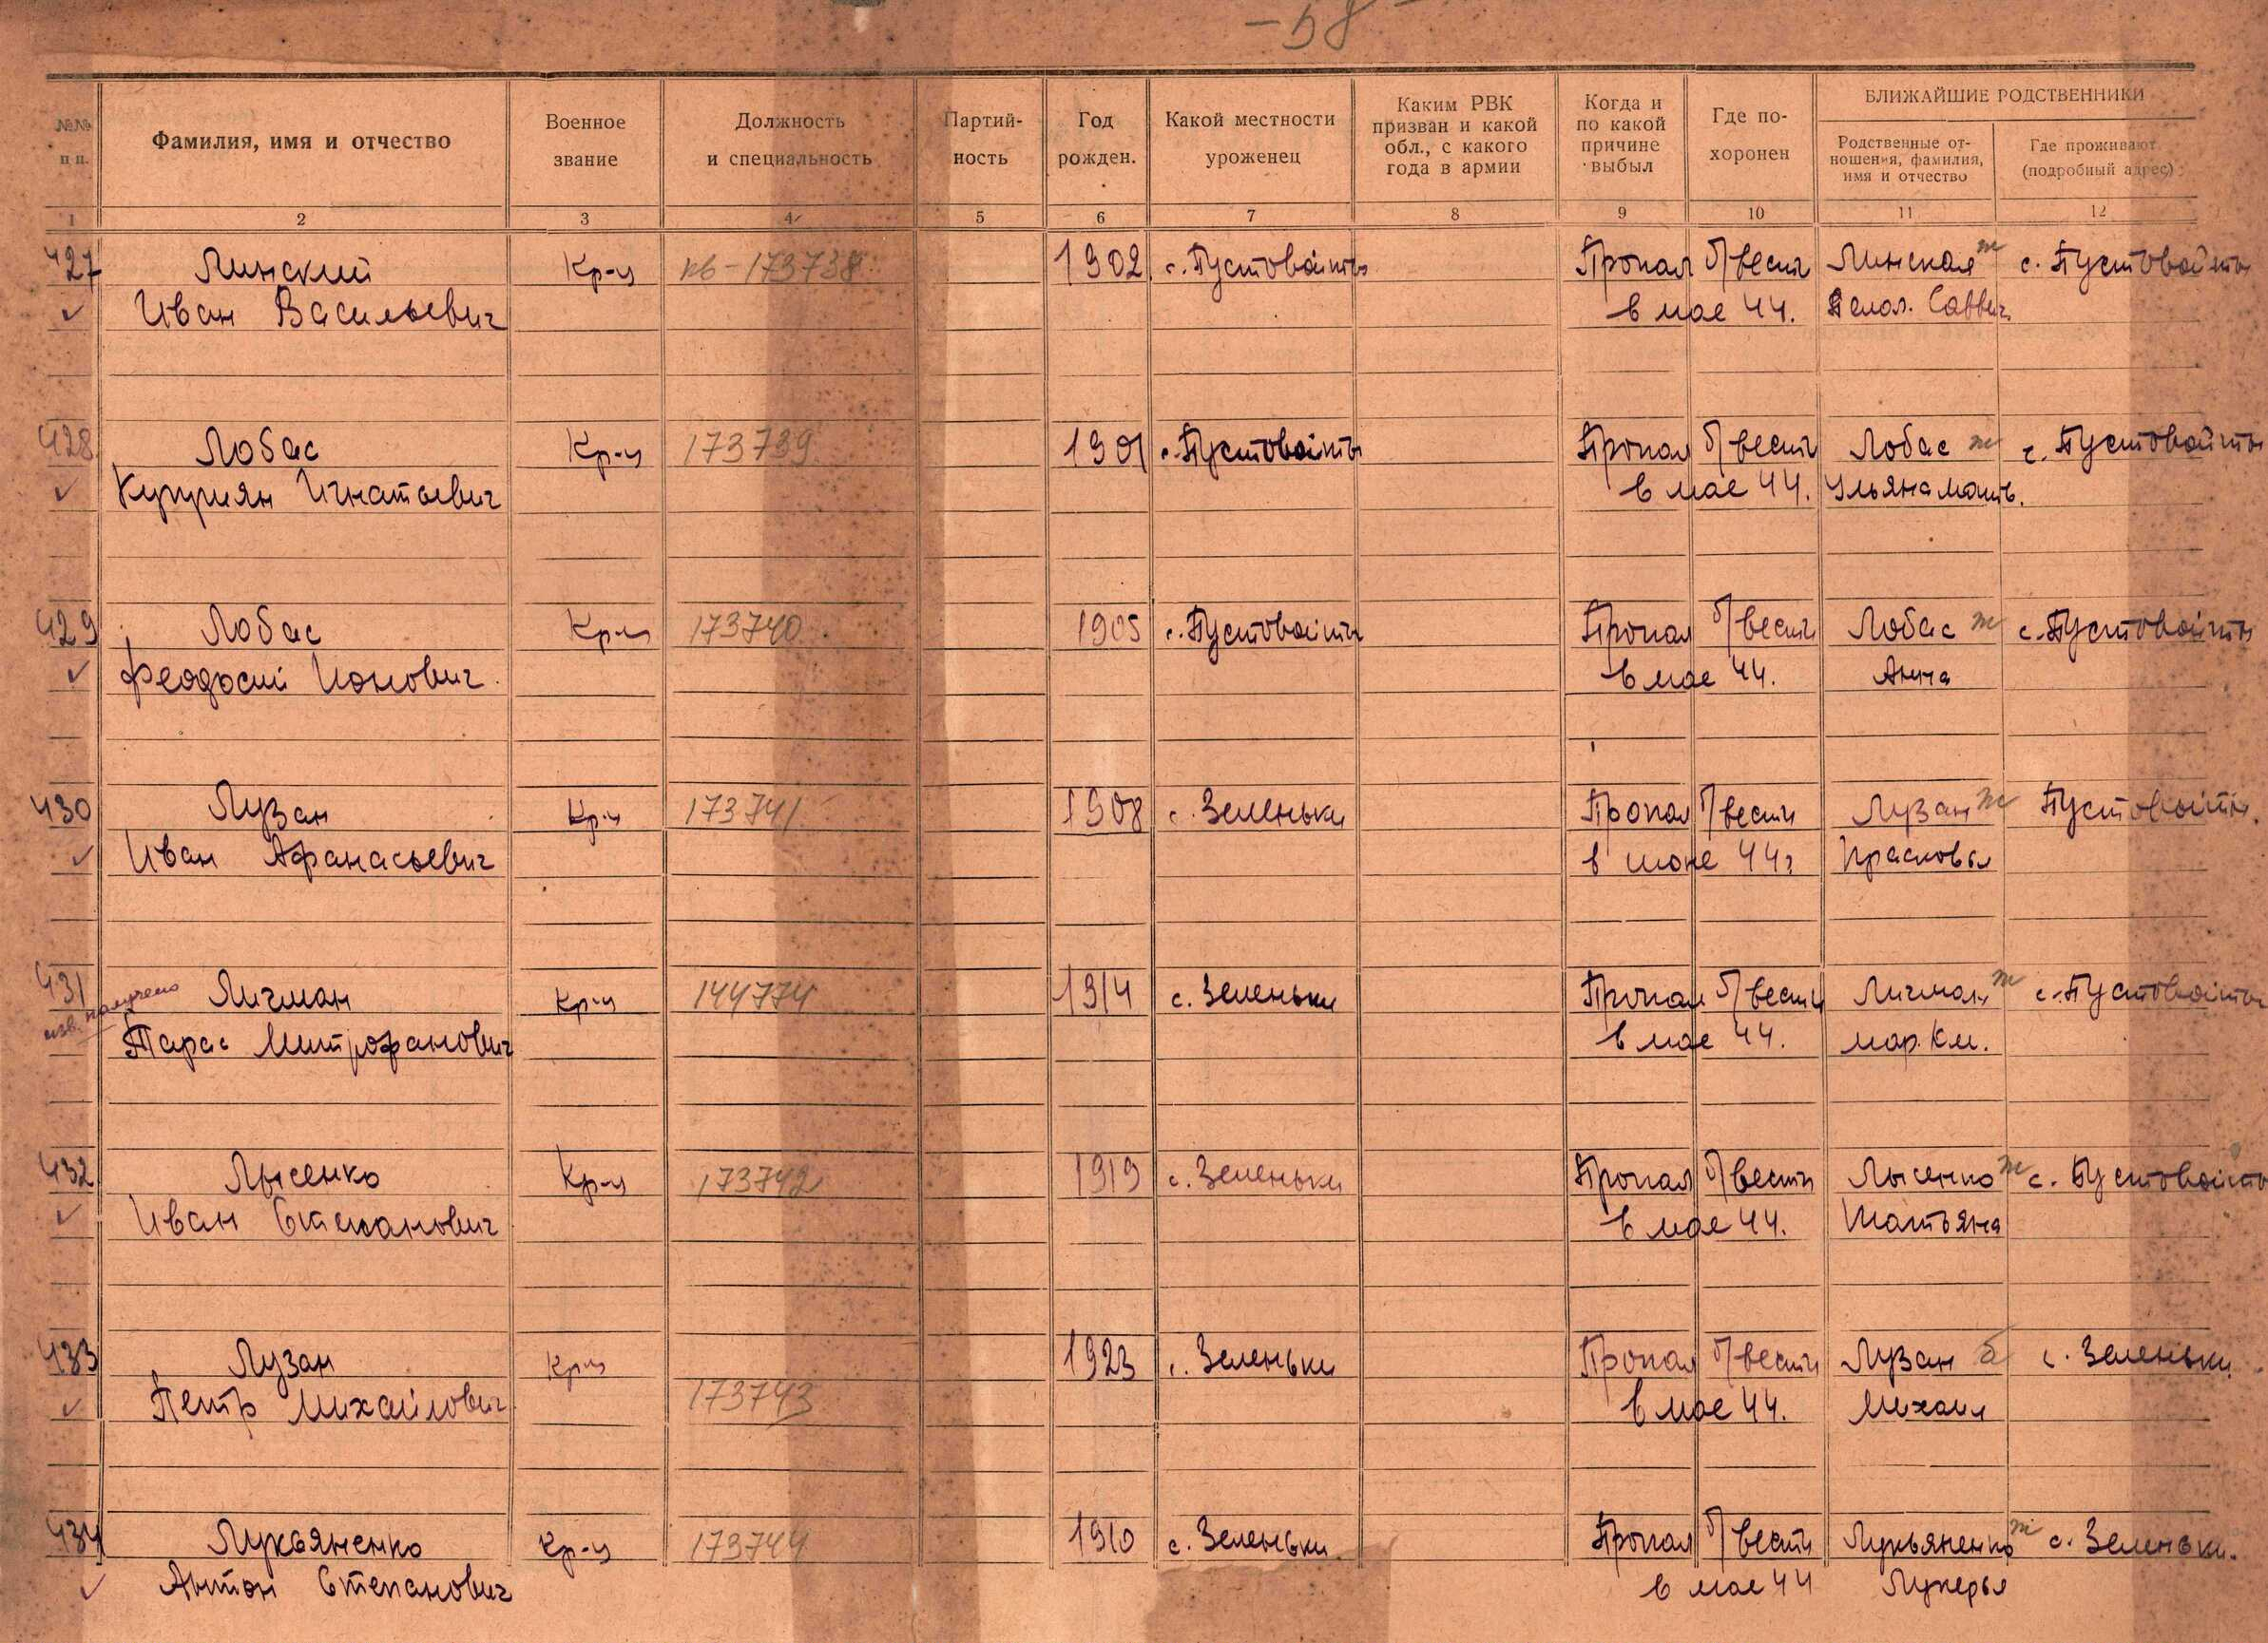 -58-
№№ п п.
Фамилия, имя и отчество
Военное звание
Должность и специальность
Партий-ность
Год рожден.
Какой местности уроженец
Каким РВК призван и какой обл., с какого года в армии
Когда и по какой причине выбыл
Где по-хоронен
БЛИЖАЙШИЕ РОДСТВЕННИКИ
Родственные от-ношения, фамилия, имя и отчество
Где проживают (подробный адрес)
1 2 3 4 5 6 7 8 9 10 11 12
427 Линский Кр-ц 173738 1902 с. Пустовойты Пропал б/вести Линская ж с. Пустовойты
Иван Васильевич в мае 44. Пелаг. Саввич.
428 Лобас Кр-ц 173739 1901 с. Пустовойты Пропал б/вести Лобас ж с. Пустовойты
Куприян Игнатьевич в мае 44. Ульяна Матв.
429 Лобас Кр-ц 173740 1905 с. Пустовойты Пропал б/вести Лобас ж с. Пустовойты
Феодосий Ионович в мае 44. Анна
430 Лузан Кр-ц 173741 1908 с. Зеленьки Пропал б/вести Лузан ж Пустовойты.
Иван Афанасьевич в июне 44г Прасковья
431 Личман Кр-ц 144774 1914 с. Зеленьки Пропал б/вести Личман ж с. Пустовойты
изв. получено
Тарас Митрофанович в мае 44. Мар. Кл.
432 Лысенко Кр-ц 173742 1919 с. Зеленьки Пропал б/вести Лысенко ж с. Пустовойты
Иван Степанович в мае 44. Татьяна
433 Лузан Кр-ц 1923 с. Зеленьки Пропал б/вести Лузан с. Зеленьки
Петр Михайлович 173743 в мае 44. Михаил
434 Лукьяненко Кр-ц 173744 1910 с. Зеленьки Пропал б/вести Лукьяненко ж с. Зеленьки.
Антон Степанович в мае 44 Лукерья